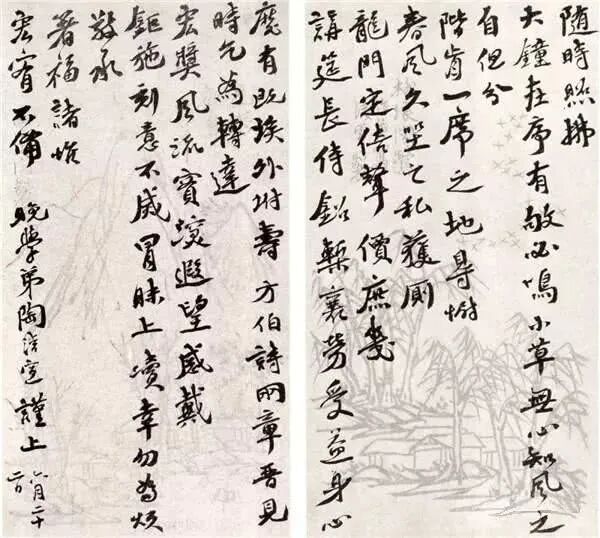 随時照拂
大鐘在序有敂必鳴小草無心知風之
自但分
階一席之地
春風久坐之私獲廁
龍門定倍聲價庶幾
講筵長侍鉛槧襄勞受益身心
靡有既埃外坿壽方伯詩兩章晉見
時乞為轉達
宏獎風流實深遐望感戴
鉅施刻意不冒昧上瀆幸勿為煩
敬承
著福諸惟
宏宥不備 晚學弟陶濬宣謹上 六月二十
二日